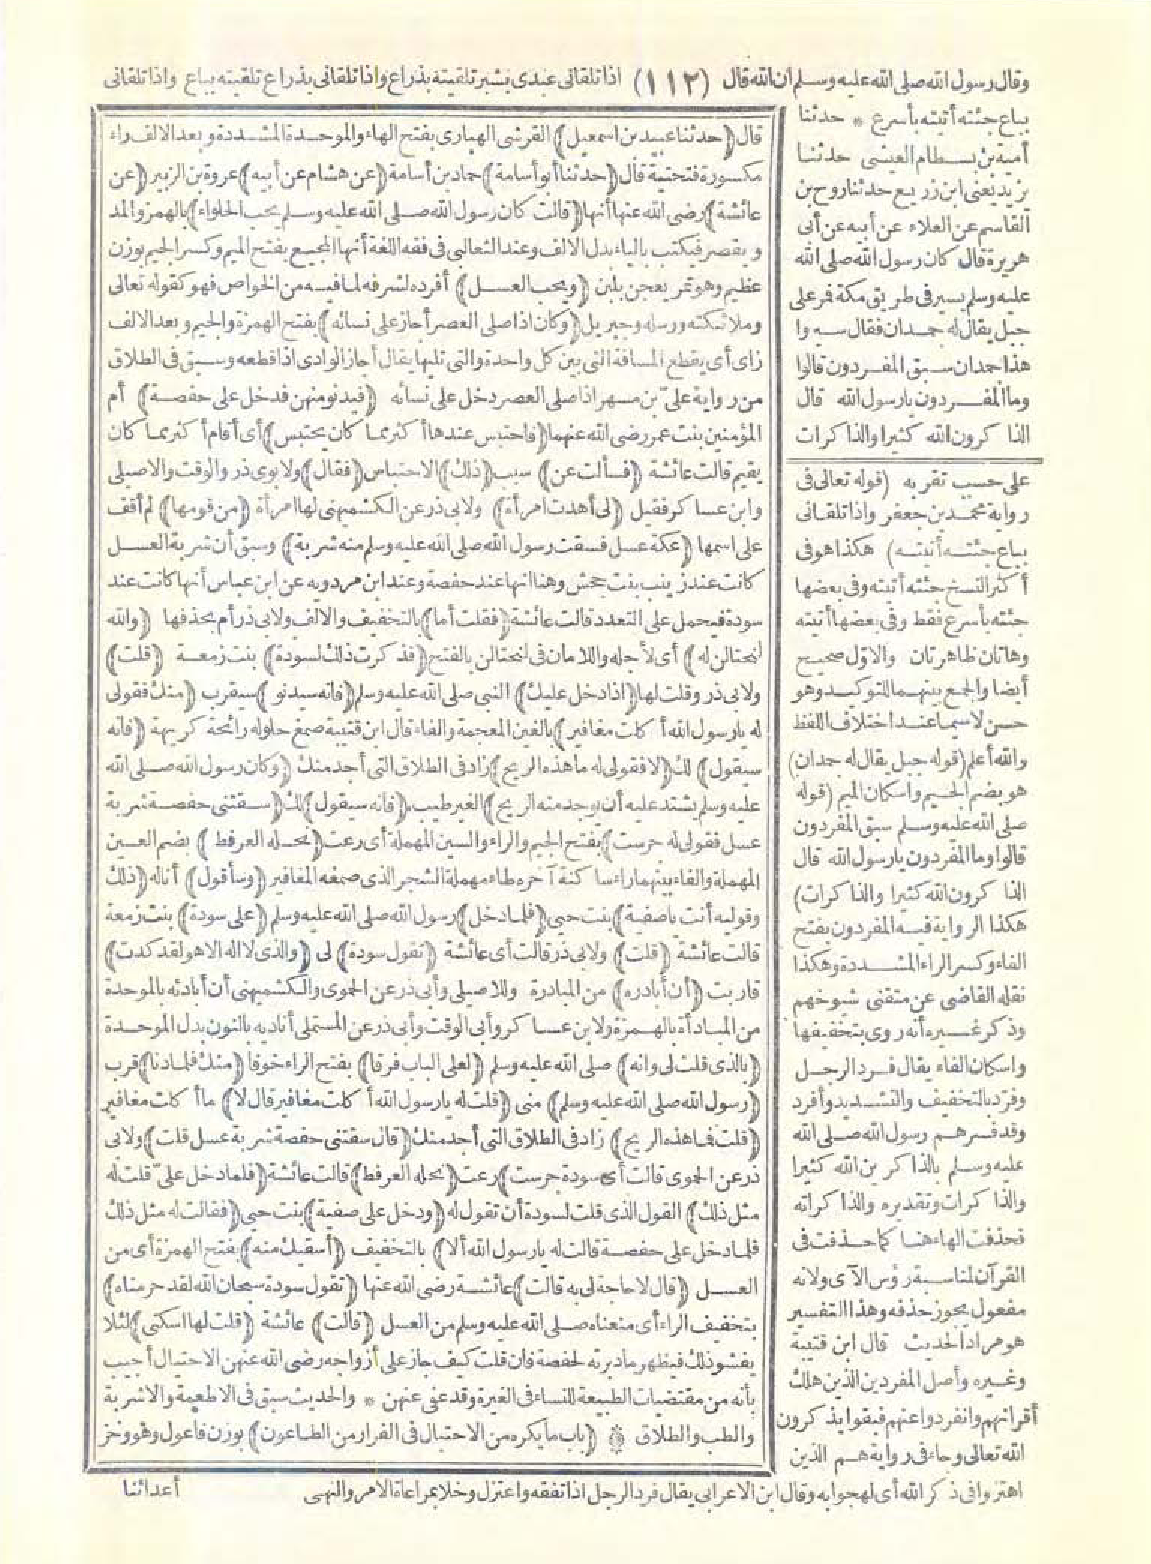 وقال رسول الله صلى الله عليه وسلم ان الله قال (١١٢) اذا تلقانى عبدى بشبر تلقيته بذراع واذا تلقانى بذراع تلقيته بباع واذا تلقانى
بباع جئته أتيته بأسرع * حدثنا
أمية بن بسطام العيشى حدثنا
يزيد يعنى ابن زريع حدثنا روح بن
القاسم عن العلاء عن أبيه عن أبى
هريرة قال كان رسول الله صلى الله
عليه وسلم يسير فى طريق مكة فمر على
جبل يقال له جمدان فقال سيروا
هذا جمدان سبق المفردون قالوا
وما المفردون يارسول الله قال
الذاكرون الله كثيرا والذاكرات
على حسب تقربه (قوله تعالى فى
رواية محمد بن جعفر واذا تلقانى
بباع جئته أتيته) هكذا هو فى
أكثر النسخ جئته أتيته وفى بعضها
جئته بأسرع فقط وفى بعضها أتيته
وهاتان ظاهرتان والاول صحيح
أيضا والجمع بينهما للتوكيد وهو
حسن لاسيما عند اختلاف اللفظ
والله أعلم (قوله جبل يقال له جمدان)
هو بضم الجيم واسكان الميم (قوله
صلى الله عليه وسلم سبق المفردون
قالوا وما المفردون يارسول الله قال
الذاكرون الله كثيرا والذاكرات)
هكذا الرواية فيه المفردون بفتح
الفاء وكسر الراء المشددة وهكذا
نقله القاضى عن متقنى شيوخهم
وذكر غيره أنه روى بتخفيفها
واسكان الفاء يقال فرد الرجل
وفرد بالتخفيف والتشديد وأفرد
وقد فسرهم رسول الله صلى الله
عليه وسلم بالذاكرين الله كثيرا
والذاكرات وتقديره والذاكراته
فحذفت الهاء هنا كما حذفت فى
القرآن لمناسبة رؤس الآى ولانه
مفعول يجوز حذفه وهذا التفسير
هو مراد الحديث قال ابن قتيبة
وغيره وأصل المفردين الذين هلك
أقرانهم وانفردوا عنهم فبقوا يذكرون
الله تعالى وجاء فى رواية هم الذين
اهتزوا فى ذكر الله أى لهجوا به وقال ابن الاعرابى يقال فرد الرجل اذا تفقه واعتزل وخلا بمراعاة الامر والنهى
قال (حدثنا عبيد بن اسمعيل) القرشى الهبارى بفتح الهاء والموحدة المشددة وبعد الالف راء
مكسورة فتحتية قال (حدثنا أبو أسامة) حماد بن أسامة (عن هشام عن أبيه) عروة بن الزبير (عن
عائشة) رضى الله عنها أنها (قالت كان رسول الله صلى الله عليه وسلم يحب الحلواء) بالهمز والمد
ويقصر فيكتب بالياء بدل الالف وعند الثعالبى فى فقه اللغة أنها المجيع بفتح الميم وكسر الجيم بوزن
عظيم وهو تمر يعجن بلبن (ويحب العسل) أفرده لشرفه لما فيه من الخواص فهو كقوله تعالى
وملائكته ورسله وجبريل (وكان اذا صلى العصر أجاز على نسائه) بفتح الهمزة والجيم وبعد الالف
زاى أى يقطع المسافة التى بين كل واحدة والتى تليها يقال أجاز الوادى اذا قطعه وسبق فى الطلاق
من رواية على بن مسهر اذا صلى العصر دخل على نسائه (فيدنو منهن فدخل على حفصة) أم
المؤمنين بنت عمر رضى الله عنهما (فاحتبس عندها أكثر مما كان يحتبس) أى أقام أكثر مما كان
يقيم قالت عائشة (فسألت عن) سبب (ذلك) الاحتباس (فقال) ولابوى ذر والوقت والاصيلى
وابن عساكر فقيل (لى أهدت امرأة) ولابى ذر عن الكشميهنى لها امرأة (من قومها) لم أقف
على اسمها (عكة عسل فسقت رسول الله صلى الله عليه وسلم منه شربة) وسبق أن شربة العسل
كانت عند زينب بنت جحش وهنا انها عند حفصة وعند ابن مردويه عن ابن عباس أنها كانت عند
سودة فيحمل على التعدد قالت عائشة (فقلت أما) بالتخفيف والالف ولابى ذر أم بحذفها (والله
لنحتالن له) أى لأجله واللامان فى لنحتالن بالفتح (فذكرت ذلك لسودة) بنت زمعة (قلت)
ولابى ذر وقلت لها (اذا دخل عليك) النبى صلى الله عليه وسلم (فانه سيدنو) سيقرب (منك فقولى
له يارسول الله أكلت مغافير) بالغين المعجمة والفاء قال ابن قتيبة صمغ حلو له رائحة كريهة (فانه
سيقول) لك (لا فقولى له ما هذه الريح) زاد فى الطلاق التى أجد منك (وكان رسول الله صلى الله
عليه وسلم يشتد عليه أن يوجد منه الريح) الغير طيب (فانه سيقول) لك (سقتنى حفصة شربة
عسل فقولى له جرست) بفتح الجيم والراء والسين المهملة أى رعت (نحله العرفط) بضم العين
المهملة والفاء بينهما راء ساكنة آخره طاء مهملة الشجر الذى صمغه المغافير (وسأقول) أنا له (ذلك
وقوليه أنت ياصفية) بنت حيى (فلما دخل) رسول الله صلى الله عليه وسلم (على سودة) بنت زمعة
قالت عائشة (قلت) ولابى ذر قالت أى عائشة (تقول سودة) لى (والذى لا اله الا هو لقد كدت)
قاربت (أن أبادره) من المبادرة وللاصيلى وأبى ذر عن الحموى والكشميهنى أن أبادئه بالموحدة
من المبادأة بالهمزة ولابن عساكر وأبى الوقت وأبى ذر عن المستملى أناديه بالنون بدل الموحدة
(بالذى قلت لى وانه) صلى الله عليه وسلم (لعلى الباب فرقا) بفتح الراء خوفا (منك فلما دنا) قرب
(رسول الله صلى الله عليه وسلم) منى (قلت له يارسول الله أكلت مغافير قال لا) ما أكلت مغافير
(قلت فما هذه الريح) زاد فى الطلاق التى أجد منك (قال سقتنى حفصة شربة عسل قلت) ولابى
ذر عن الحموى قالت أى سودة جرست) رعت (نحله العرفط) قالت عائشة (فلما دخل على قلت له
مثل ذلك) القول الذى قلت لسودة أن تقول له (ودخل على صفية) بنت حيى (فقالت له مثل ذلك
فلما دخل على حفصة قالت له يارسول الله ألا) بالتخفيف (أسقيك منه) بفتح الهمزة أى من
العسل (قال لا حاجة لى به قالت) عائشة رضى الله عنها (تقول سودة سبحان الله لقد حرمناه)
بتخفيف الراء أى منعناه صلى الله عليه وسلم من العسل (قالت) عائشة (قلت لها اسكتى) لئلا
يفشو ذلك فيظهر ما دبرته لحفصة فان قلت كيف جاز على أزواجه رضى الله عنهن الاحتيال أجيب
بأنه من مقتضيات الطبيعة للنساء فى الغيرة وقد عفى عنهن * والحديث سبق فى الاطعمة والاشربة
والطب والطلاق (باب ما يكره من الاحتيال فى الفرار من الطاعون) بوزن فاعول وهو وخز
أعدائنا